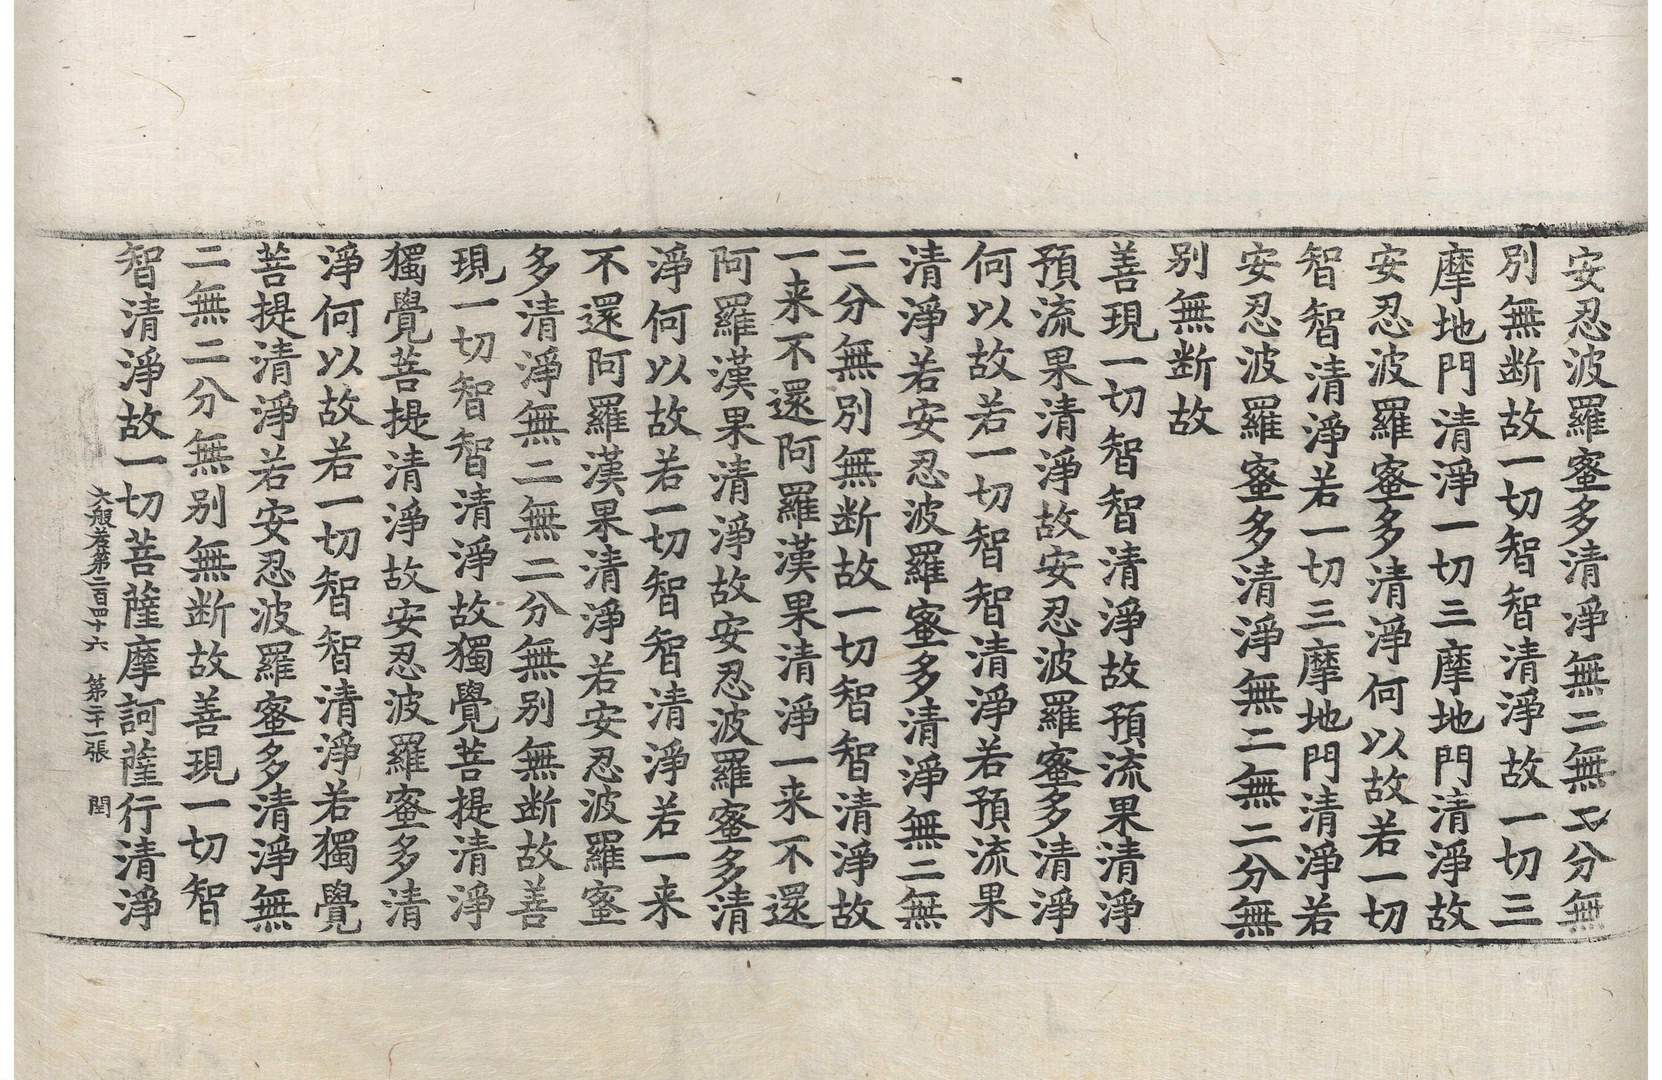 安忍波羅蜜多清淨無二無二分無
別無断故一切智智清淨故一切三
摩地門清淨一切三摩地門清淨故
安忍波羅蜜多清淨何以故若一切
智智清淨若一切三摩地門清淨若
安忍波羅蜜多清淨無二無二分無
别無断故
善現一切智智清淨故預流果清淨
預流果清淨故安忍波羅蜜多清淨
何以故若一切智智清淨若預流果
清淨若安忍波羅蜜多清淨無二無
二分無別無断故一切智智清淨故
一来不還阿羅漢果清淨一来不還
阿羅漢果清淨故安忍波羅蜜多清
淨何以故若一切智智清淨若一来
不還阿羅漢果清淨若安忍波羅蜜
多清淨無二無二分無别無断故善
現一切智智清淨故獨覺菩提清淨
獨覺菩提清淨故安忍波羅蜜多清
淨何以故若一切智智清淨若獨覺
菩提清淨若安忍波羅蜜多清淨無
二無二分無别無断故善現一切智
智清淨故一切菩薩摩訶薩行清淨
大般若第二百四十六 第二十一張 閏